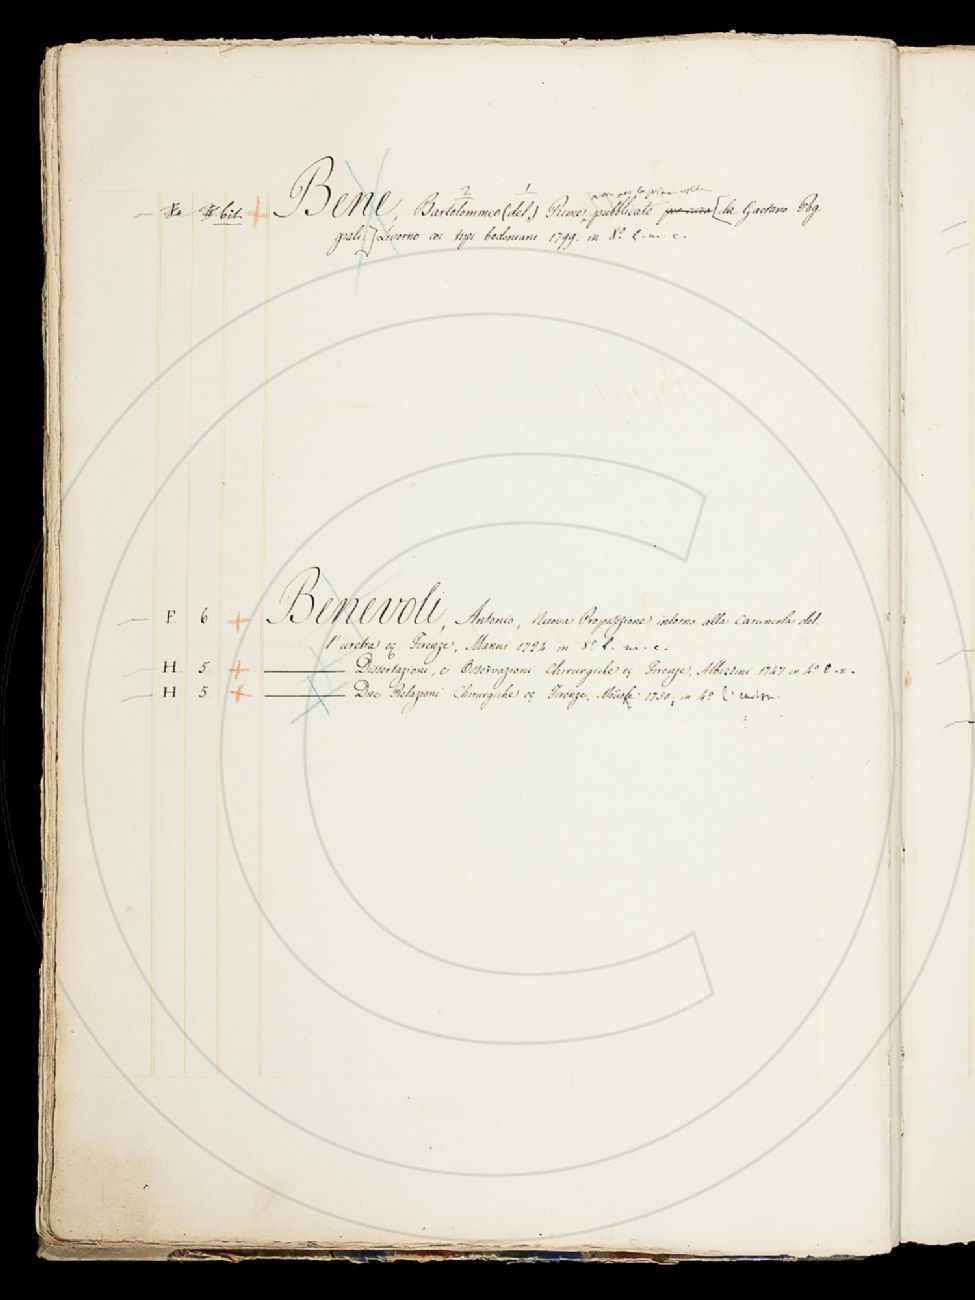 Bene, Bartolommeo (del,) Rime, pubblicate per cura da Gaetano Pog
giali Livorno co' tipi bodoniani 1799. in 8.º l. m. c.
F. 6. Benevoli, Antonio, Nuova Proposizione intorno alla caruncola del
l'uretra ec Firenze, Manni 1724. in 8.º l. m. c.
H. 5. Dissertazioni, e Osservazioni Chirurgiche ec Firenze, Albizzini 1747. in 4.º l.
H 5. Due Relazioni Chirurgiche ec Firenze, 1750, in 4.º l.